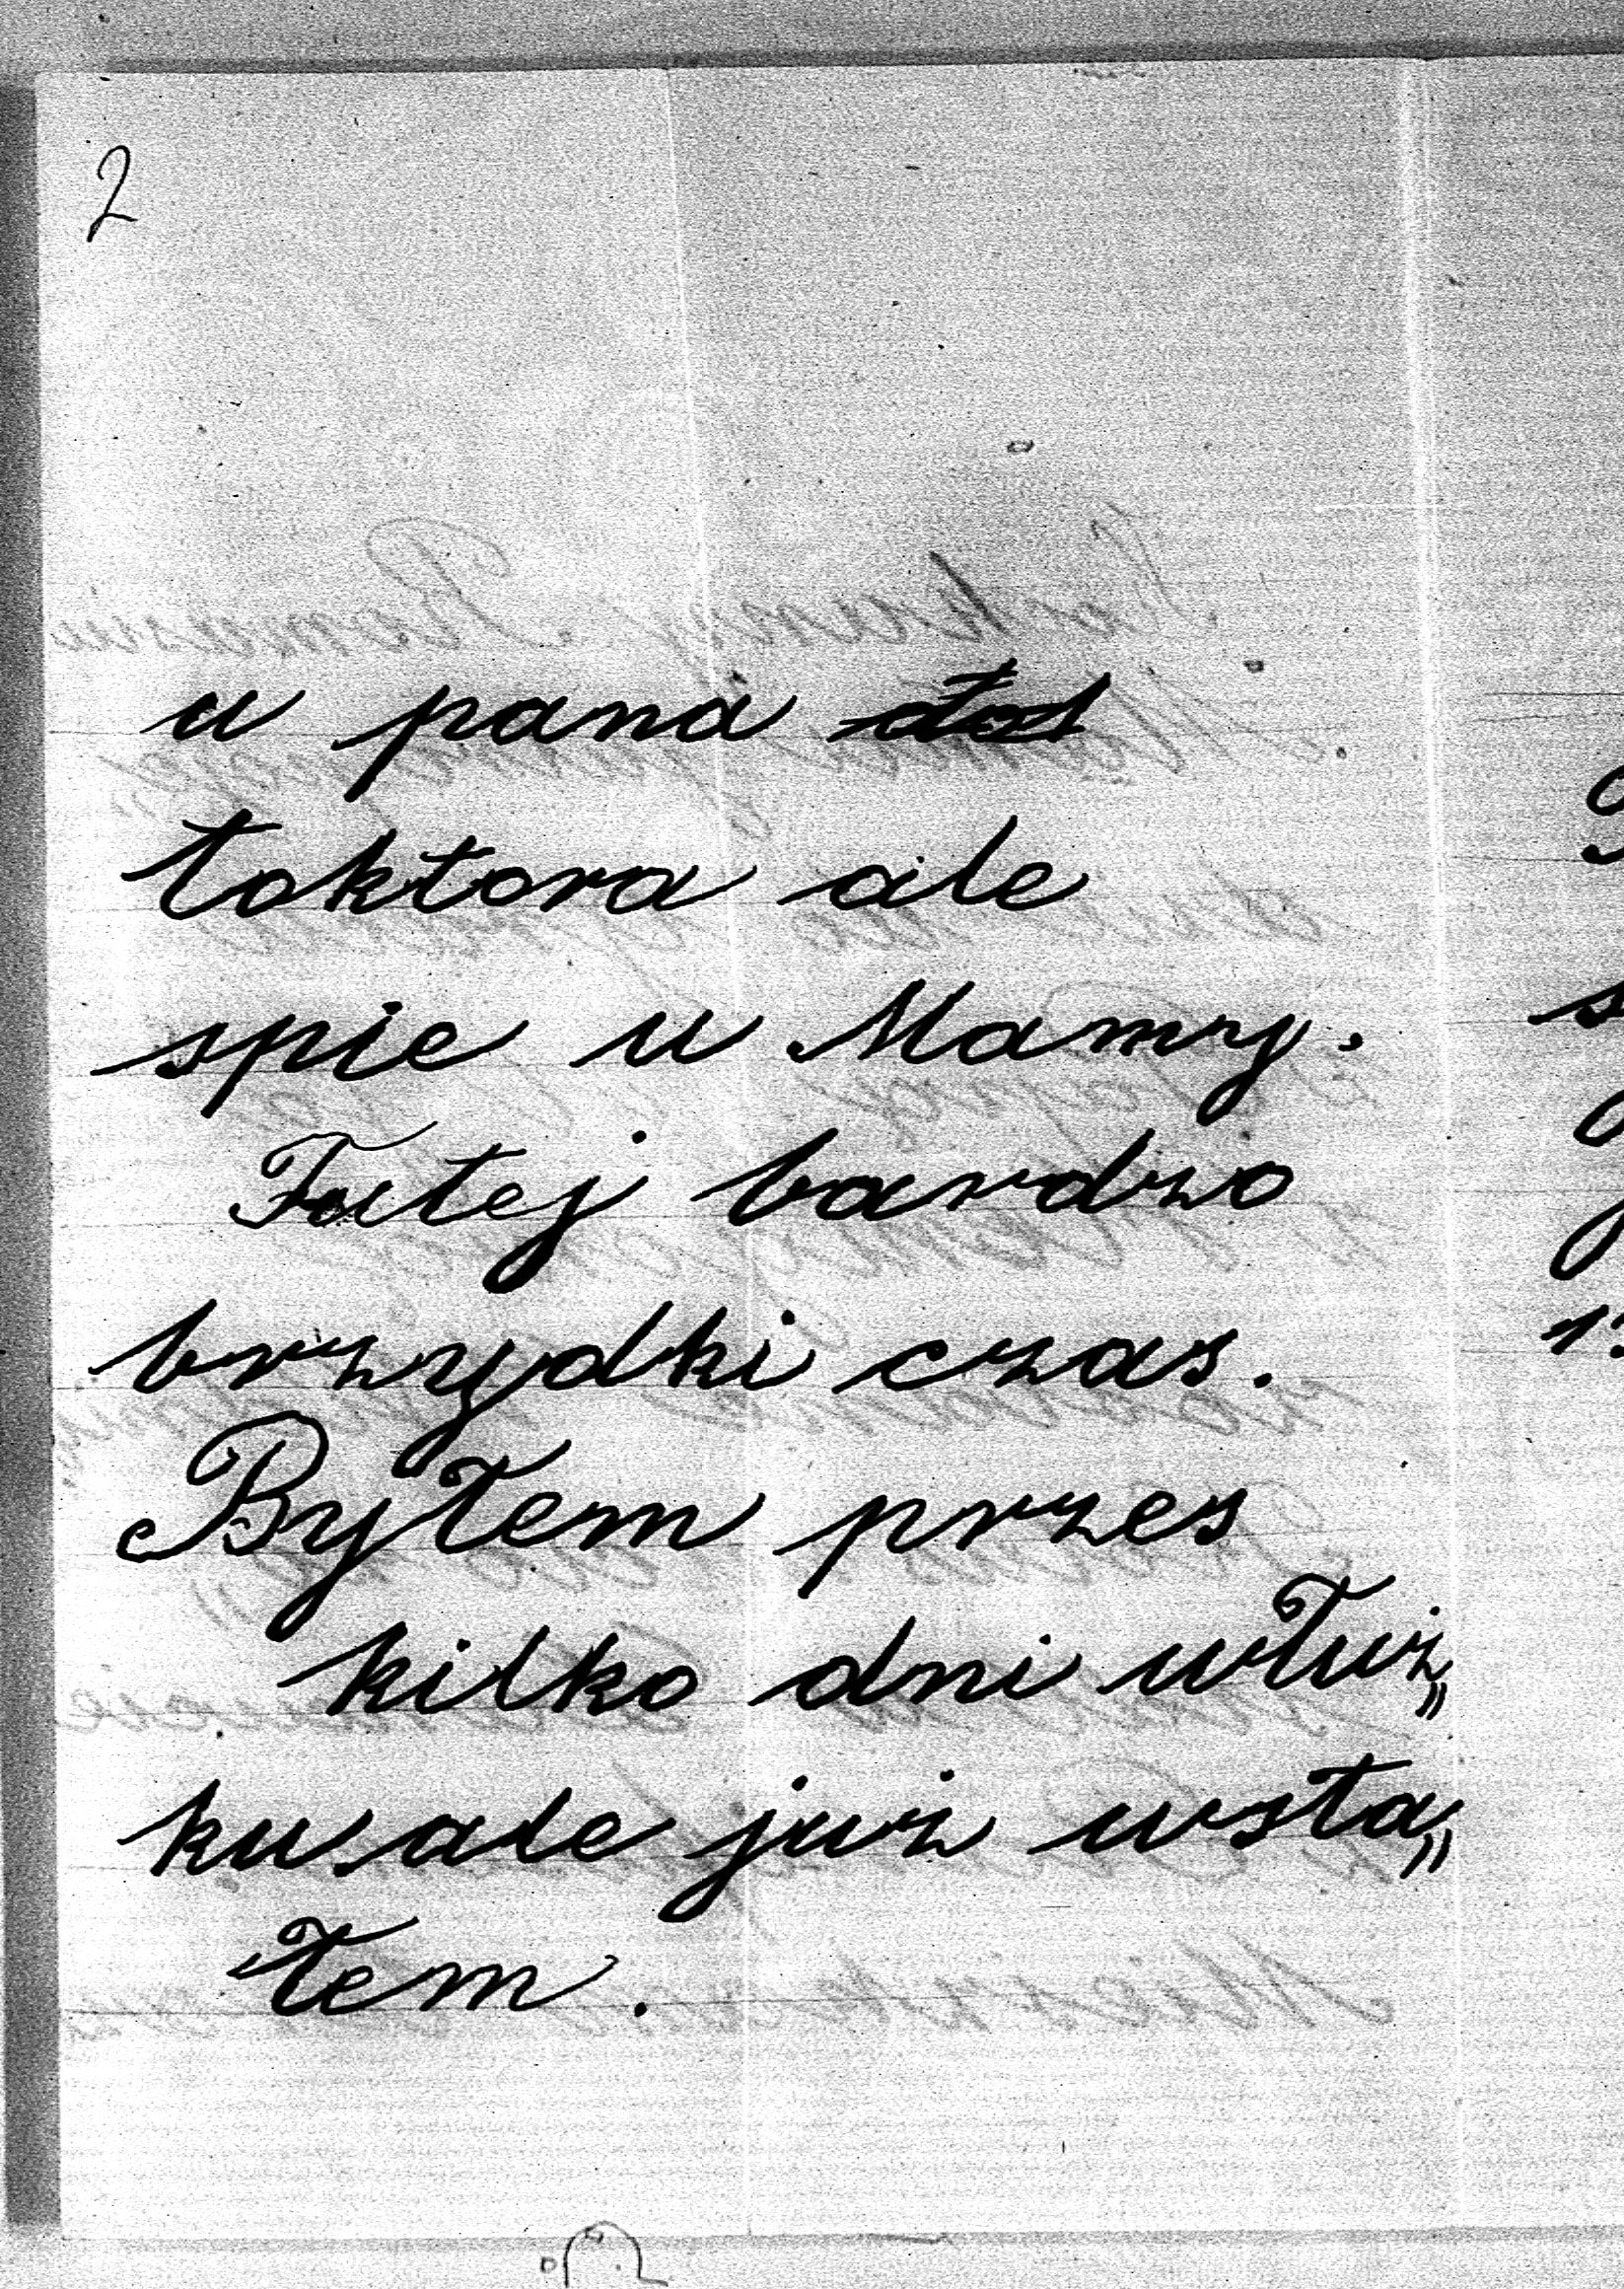 2
u pana
toktora ale
spie u Mamy.
Tutej bardzo
brzydki czas.
Byłem przes
kilko dni włuż„
ku ale już wsta„
łem.